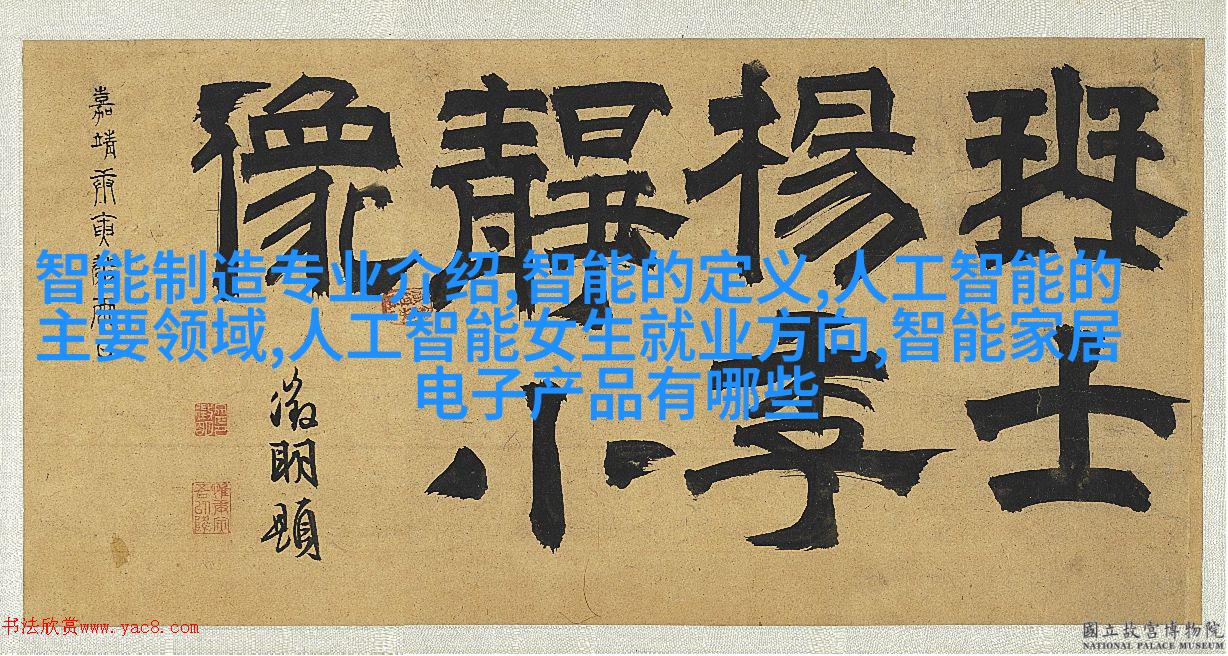 琴士
楊季
靜小
像
嘉靖庚寅
徵明題
智能制造专业介绍,智能的定义,人工智能的
主要领域,人工智能女生就业方向,智能家居
电子产品有哪些
书法欣赏www.yac8.com
國立故宮博物院
NATIONAL PALACE MUSEUM